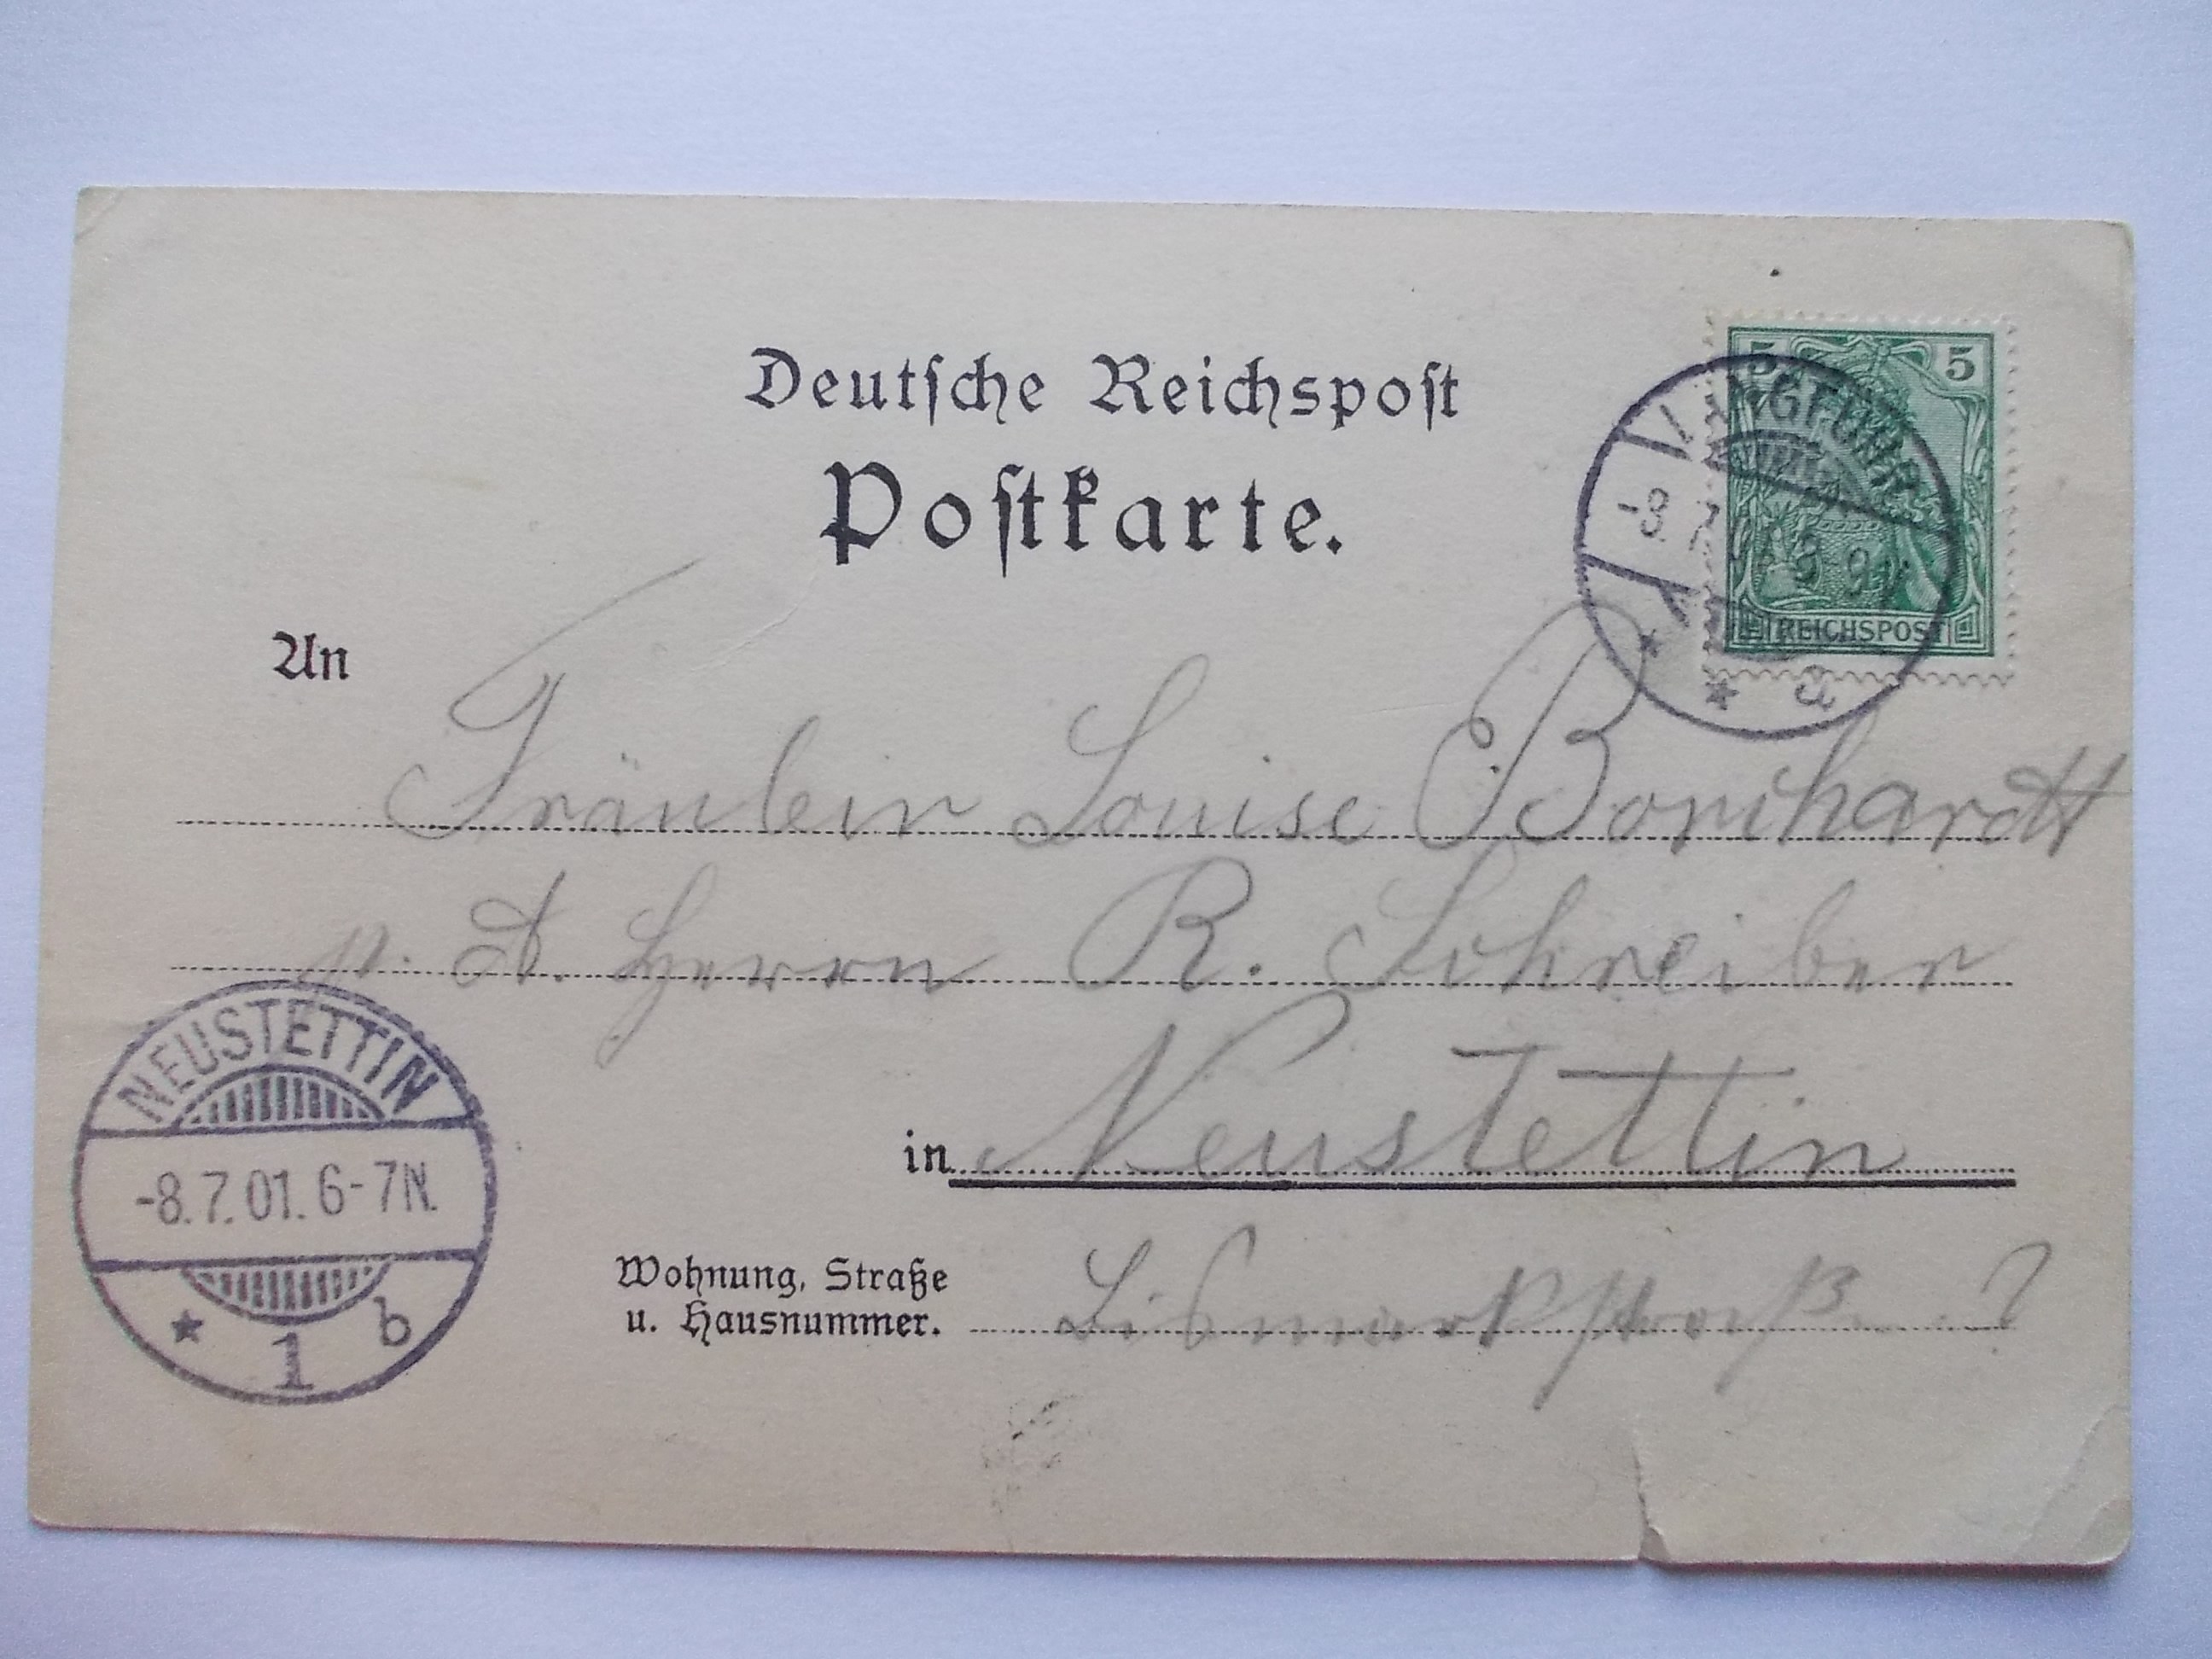 Deutsche Reichspost
Postkarte.
5 5
LANGFUHR
-8.7. 8-9V
* * a
REICHSPOST
An
Fräulein Louise Borchardt
p. A. Herrn R. Schreiber
in Neustettin
Wohnung, Straße
u. Hausnummer.
Bismarkstraße ?
NEUSTETTIN
-8.7.01. 6-7N.
* 1 b